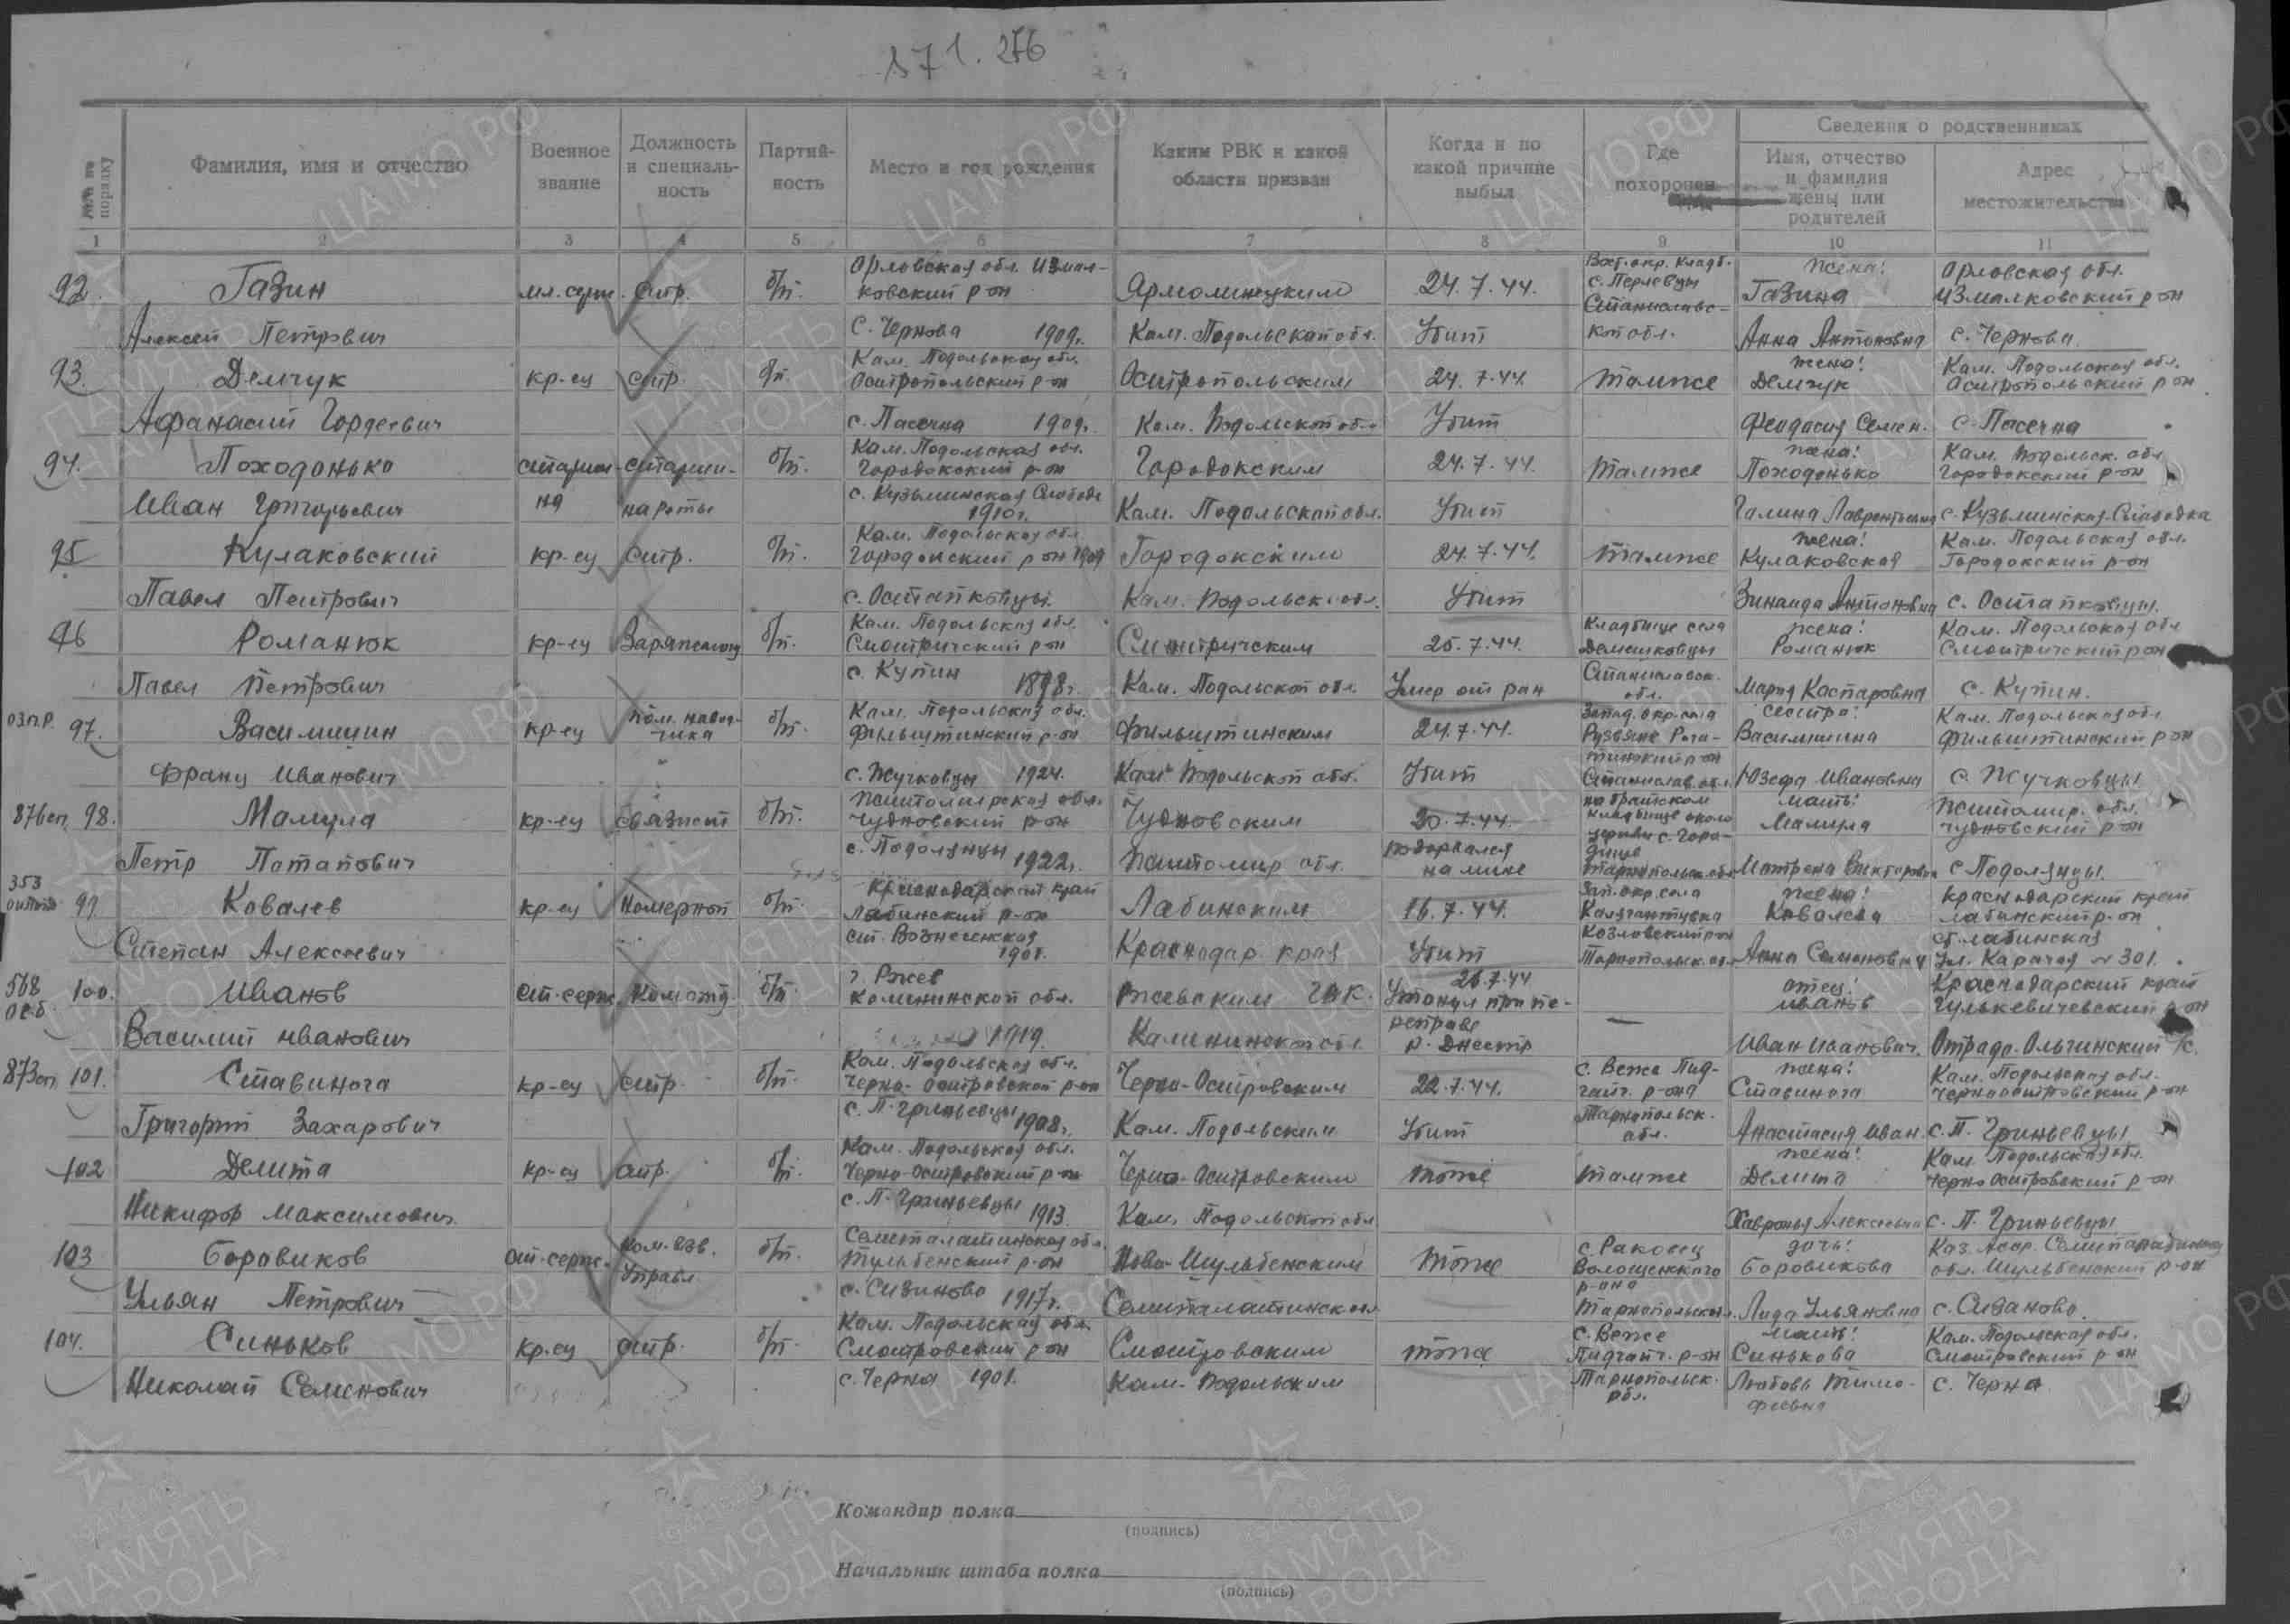 871. 256
№№ по порядку
Фамилия, имя и отчество
Военное звание
Должность и специальность
Партийность
Место и год рождения
Каким РВК и какой области призван
Когда и по какой причине выбыл
Где похоронен
Сведения о родственниках
Имя, отчество и фамилия жены или родителей
Адрес местожительства
1 2 3 4 5 6 7 8 9 10 11
92. Газин Алексей Петрович мл. серж. стр. б/п. Орловская обл. Измалковский р-он с. Чернова 1909г. Ярмолинецким Кам. Подольской обл. 24.7.44. Убит Вост. окр. кладб. с. Перлевцы Станиславской обл. жена: Газина Анна Антоновна Орловская обл. Измалковский р-он с. Чернова.
93. Демчук Афанасий Гордеевич кр-ец стр. б/п. Кам. Подольская обл. Остропольский р-он с. Пасечна 1909г. Остропольским Кам. Подольской обл. 24.7.44. Убит там же жена: Демчук Феодосия Семен. Кам. Подольская обл. Остропольский р-он с. Пасечна
94. Походонько Иван Григорьевич старшина старшина роты б/п. Кам. Подольская обл. Городокский р-он с. Кузьминская Слобода 1910г. Городокским Кам. Подольской обл. 24.7.44. Убит там же жена: Походонько Галина Лаврентьевна Кам. Подольск. обл. Городокский р-он с. Кузьминская-Слободка
95 Кулаковский Павел Петрович кр-ец стр. б/п. Кам. Подольская обл. Городокский р-он 1909 с. Остапковцы. Городокским Кам. Подольск. обл. 24.7.44. Убит там же жена: Кулаковская Зинаида Антоновна Кам. Подольская обл. Городокский р-он с. Остапковцы.
96 Романюк Павел Петрович кр-ец б/п. Кам. Подольская обл. Смотричский р-он с. Купин 1898г. Смотричским Кам. Подольской обл. 25.7.44. Умер от ран Кладбище села Демешковцы Станиславск. обл. жена: Романюк Мария Каспаровна Кам. Подольская обл. Смотричский р-он с. Купин.
97. Василишин Франц Иванович кр-ец пом. наводчика б/п. Кам. Подольская обл. Фильштинский р-он с. Жучковцы 1924. Фильштинским Кам. Подольской обл. 24.7.44. Убит Запад. окр. села Станислав. обл. сестра: Василишина Юзефа Ивановна Кам. Подольская обл. Фильштинский р-он с. Жучковцы
876 сп. 98. Мамула Петр Потапович кр-ец связист б/п. Житомирская обл. Чудновский р-он с. Подолянцы 1922г. Чудновским Житомир. обл. 20.7.44. подорвался на мине на братском кладбище около церкви с. Городище Тарнопольск. обл. мать: Мамула Матрена Викторовна Житомир. обл. Чудновский р-он с. Подолянцы.
353 99 Ковалев Степан Алексеевич кр-ец номерной б/п. Краснодарский край Лабинский р-он ст. Вознесенская 1901. Лабинским Краснодар. края 16.7.44. Убит Козловский р-он Тарнопольск. обл. жена: Ковалева Анна Семеновна Краснодарский край Лабинский р-он ст. Лабинская ул. Карачая № 301.
568 осб. 100. Иванов Василий Иванович ст. серж. ком. отд. б/п г. Ржев Калининской обл. 1919. Ржевским ГВК. Калининской обл. 26.7.44 Утонул при переправе р. Днестр — отец: Иванов Иван Иванович. Краснодарский край Гулькевичевский р-он Отрадо-Ольгинский
873 сп 101. Ставинога Григорий Захарович кр-ец стр. б/п. Кам. Подольская обл. Черно-Островской р-он с. П. Гриньевцы 1908г. Черно-Островским Кам. Подольским 22.7.44. Убит с. Веже Пидгайч. р-она Тарнопольск. обл. жена: Ставинога Анастасия Иван. Кам. Подольская обл. Черноостровский р-он с. П. Гриньевцы
102 Демита Никифор Максимович кр-ец стр. б/п. Кам. Подольская обл. Черно-Островский р-он с. П. Гриньевцы 1913. Черно-Островским Кам. Подольской обл. тоже там же жена: Демита Хавронья Алексеевна Кам. Подольская обл. Черно Островский р-он с. П. Гриньевцы
103 Боровиков Ульян Петрович ст. серж. ком. взв. управл. б/п. Семипалатинская обл. р-он с. Сизиново 1917г. Ново-Шульбенским Семипалатинской обл. тоже с. Раковец р-она Тарнопольск. дочь: Боровикова Лида Ульяновна Каз. обл. Шульбенский р-он с. Сизаново.
104. Синьков Николай Семенович кр-ец стр. б/п. Кам. Подольская обл. Смотровский р-он с. Черна 1901. Смотровским Кам. Подольским тоже с. Веже Пидгайч. р-он Тарнопольск. обл. мать: Синькова Любовь Тимофеевна Кам. Подольская обл. Смотровский р-он с. Черна
Командир полка
(подпись)
Начальник штаба полка
(подпись)
ЦАМО РФ
ПАМЯТЬ НАРОДА